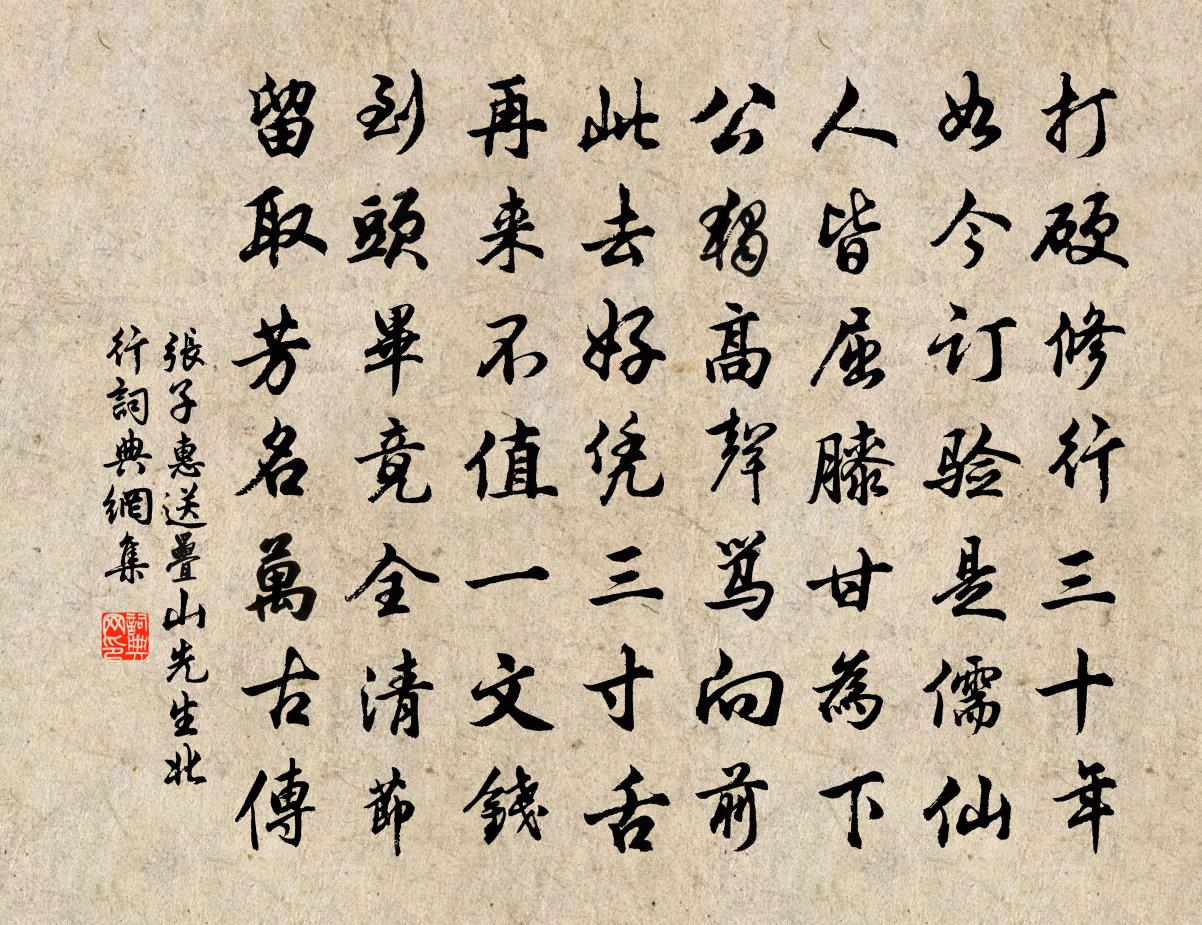 打硬修行三十年
如今订验是儒仙
人皆屈膝甘為下
公獨高聲骂向前
此去好凭三寸舌
再来不值一文錢
到頭畢竟全清節
留取芳名萬古傳
張子惠送疊山先生北
行詞典網集
詞典网印